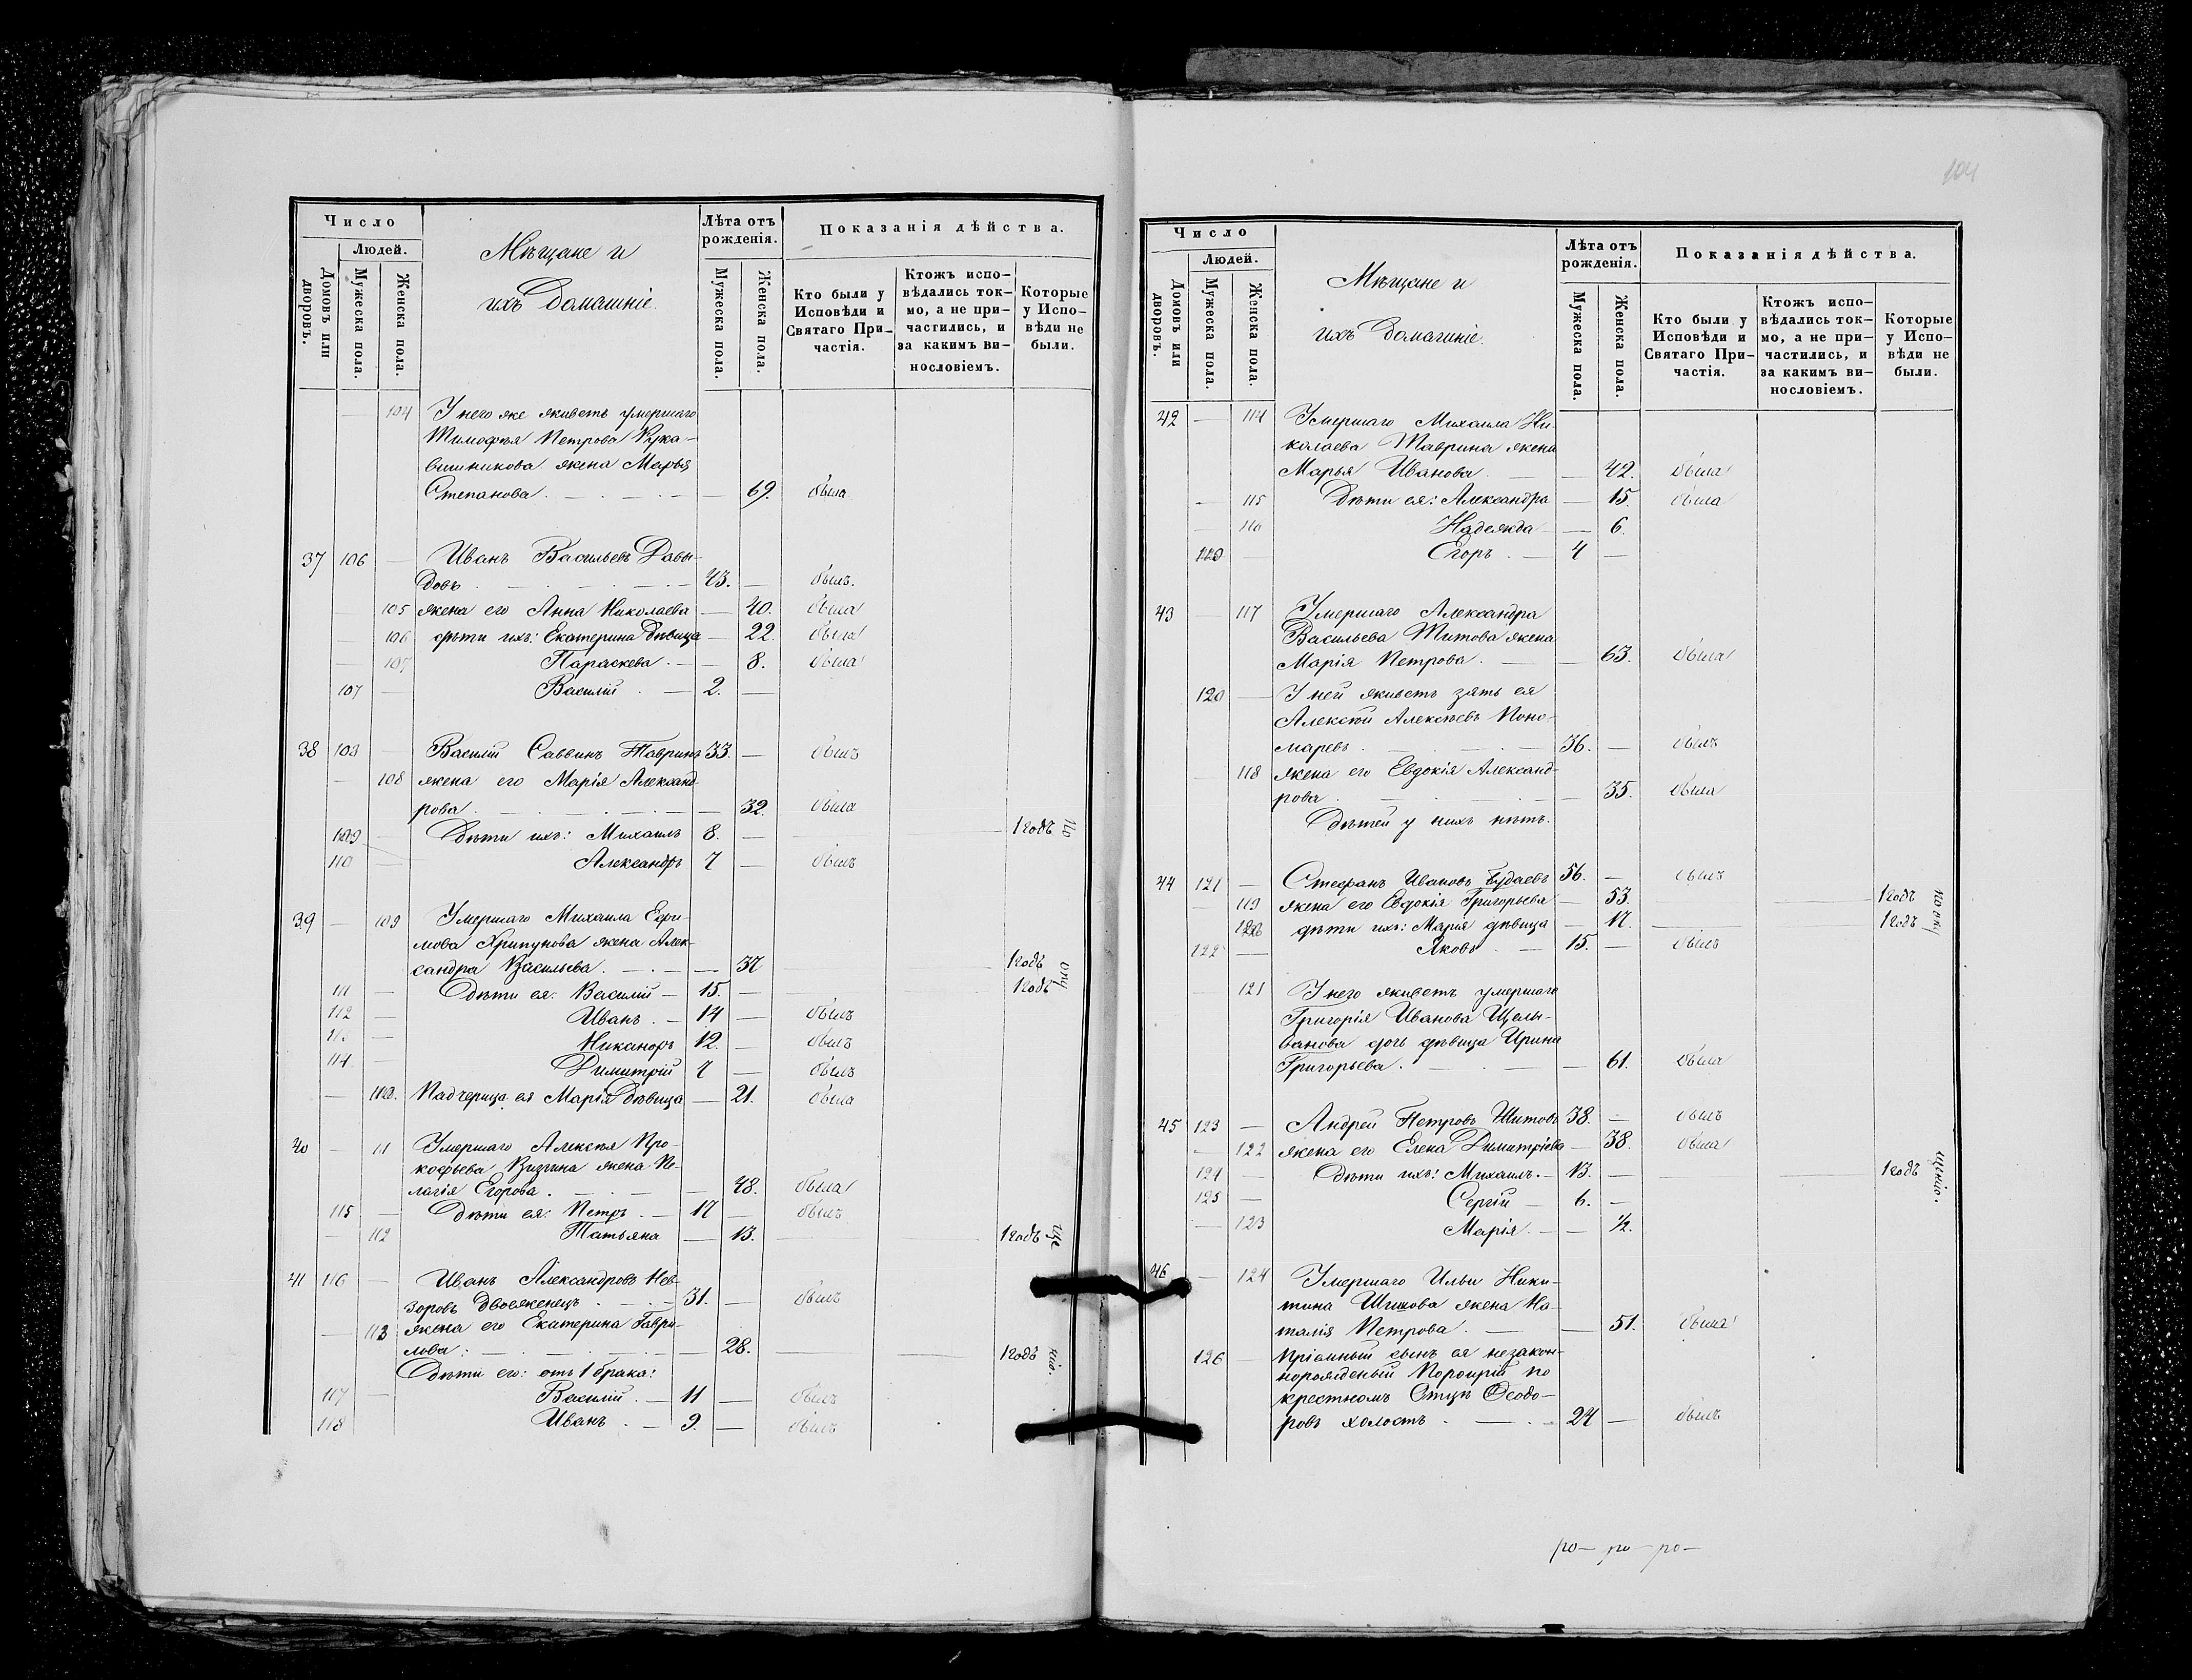 Число
Людей.
Домовъ или дворовъ.
Мужеска пола.
Женска пола.
Мѣщане и
ихъ Домашніе.
Лѣта отъ рожденія.
Мужеска пола.
Женска пола.
Показанія дѣйства.
Кто были у Исповѣди и Святаго Причастія.
Ктожъ исповѣдались токмо, а не причастились, и за какимъ винословіемъ.
Которые у Исповѣди не были.
— 104 У него же живетъ умершаго
Тимофѣя Петрова Рука-
вишникова жена Марья
Степанова — 69. была
37 106 — Иванъ Васильевъ Давы-
довъ 43. — былъ.
— 105 жена его Анна Николаева — 40. была
— 106 дѣти ихъ: Екатерина Дѣвица — 22. была
— 107 Параскева — 8. была
107 — Василій — 2. —
38 108 — Василій Саввинъ Тавринъ 33. — былъ
— 108 жена его Марія Александ-
рова — 32. была
109 Дѣти ихъ: Михаилъ 8. — 1 годъ по
110 Александръ 7 — былъ
39 — 109 Умершаго Михаила Ефи-
мова Хрипунова жена Алек-
сандра Васильева — 37 1 годъ опу
111 — Дѣти ея: Василій — 15. — 1 годъ
112 — Иванъ — 14 — былъ
— Никаноръ 12. — былъ
114 — Димитрій 7 — былъ
— 110. Падчерица ея Марія Дѣвица — 21. была
40 — 111 Умершаго Алексѣя Про-
кофьева жена Пе-
лагія Егорова — 48. была
115 — Дѣти ея: Петръ — 17 — былъ
— 112 Татьяна — 13. 1 годъ ще
41 116 — Иванъ Александровъ Нев-
зоровъ двоеженецъ 31. — былъ
— 113 жена его Екатерина Гаври-
лова: — 28. 1 годъ нію.
Дѣти его: отъ 1 брака:
117 — Василій — 11 — былъ
118 Иванъ — 9. — былъ
104
Число
Людей.
Домовъ или дворовъ.
Мужеска пола.
Женска пола.
Мѣщане и
ихъ Домашніе.
Лѣта отъ рожденія.
Мужеска пола.
Женска пола.
Показанія дѣйства.
Кто были у Исповѣди и Святаго Причастія.
Ктожъ исповѣдались токмо, а не причастились, и за какимъ винословіемъ.
Которые у Исповѣди не были.
42 — 114 Умершаго Михаила Ни-
колаева Таврина жена
Марья Иванова — 42. была
— 115 Дѣти ея: Александра — 15. была
— 116 Надежда — 6.
119 Егоръ — 4 —
43 — 117 Умершаго Александра
Васильева Титова жена
Марія Петрова — 63. была
120 — У ней живетъ зять ея
Алексѣй Алексѣевъ Поно-
маревъ 36. — былъ
— 118 жена его Евдокія Александ-
рова — 35. была
Дѣтей у нихъ нѣтъ.
44 121 — Стефанъ Ивановъ Будаевъ 56. — былъ
— 119 жена его Евдокія Григорьева — 53. 1 годъ по опу
120 дѣти ихъ: Марія дѣвица — 17. 1 годъ
122 — Яковъ — 15. — былъ
— 121 У него живетъ умершаго
Григорія Иванова Щелы-
ванова дочь дѣвица Ирина
Григорьева — 61. была
45 123 — Андрей Петровъ Шитовъ 38. — былъ
— 122 жена его Елена Димитріева — 38. была
124 — Дѣти ихъ: Михаилъ — 13. — 1 годъ щенію.
125 — Сергій — 6. —
— 123 Марія — ½.
46 — 124 Умершаго Ильи Ники-
тина Шишова жена На-
талія Петрова — 51. была
126 — Пріемный сынъ ея незакон-
норожденый Порфирій по
крестномъ Отцѣ Ѳеодо-
ровъ холостъ — 24 — былъ
ро— ро— ро—